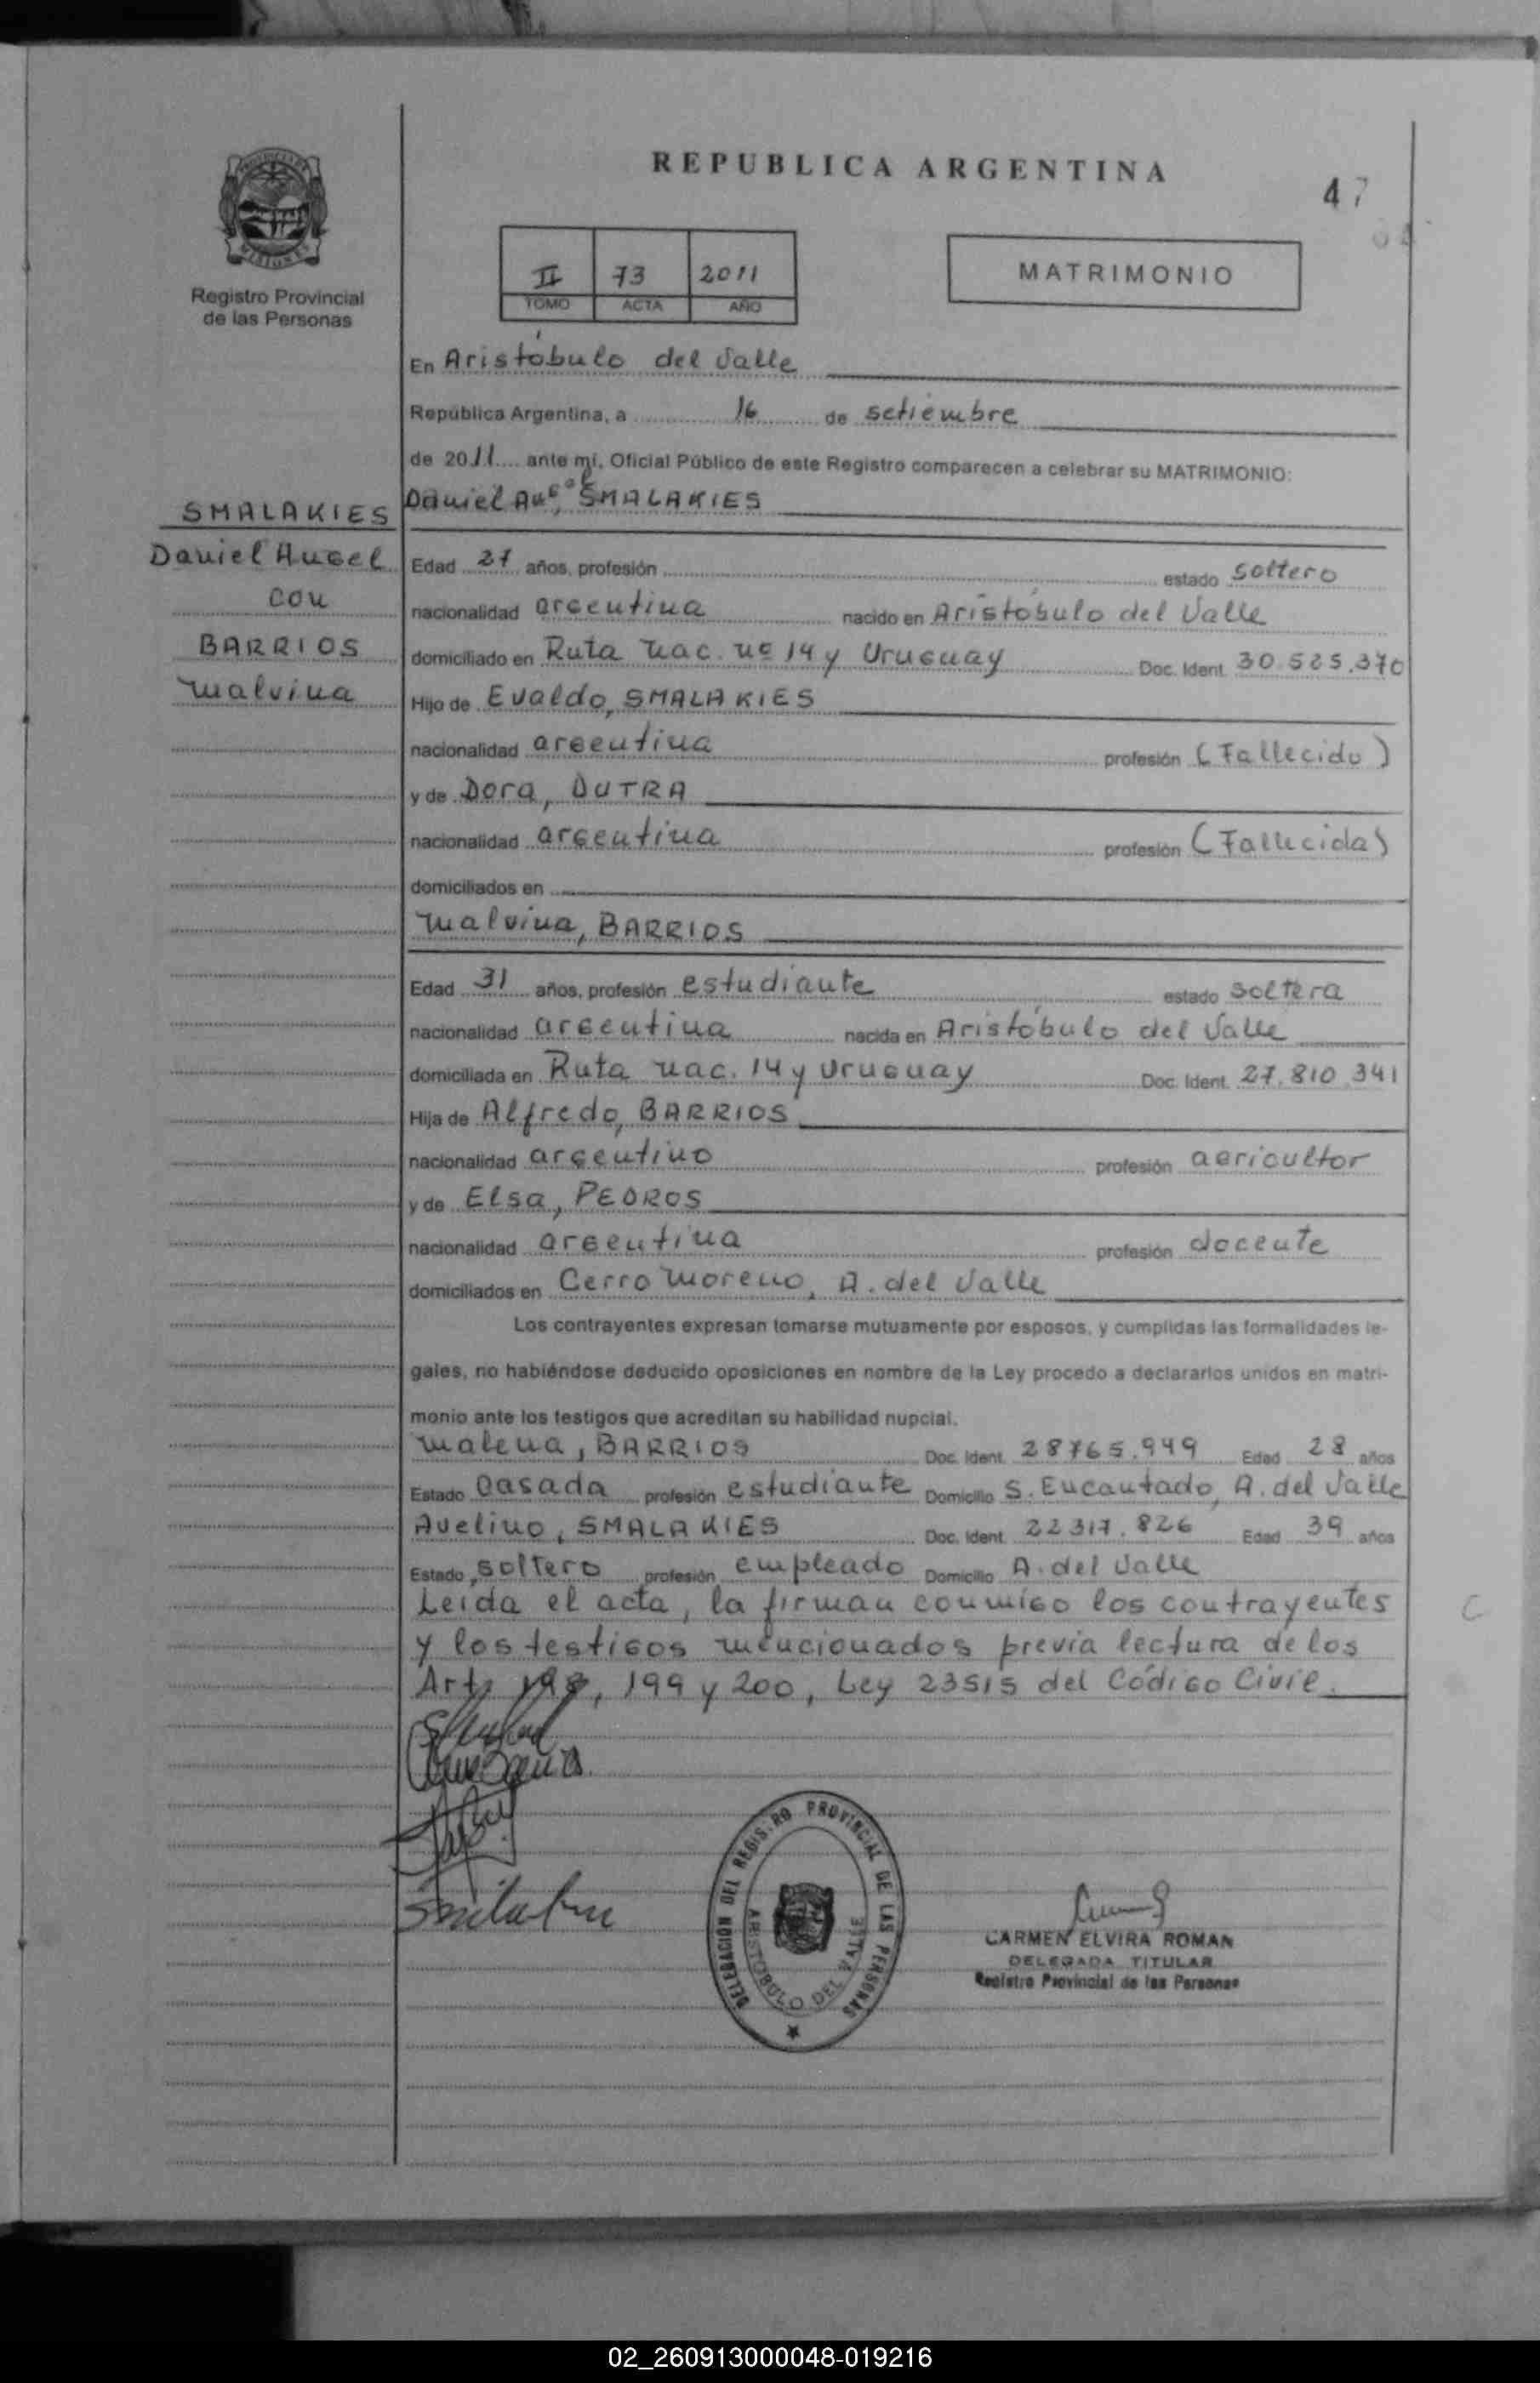 REPUBLICA ARGENTINA
47
PROVINCIA DE
MISIONES
Registro Provincial
de las Personas
II 73 2011
TOMO ACTA AÑO
MATRIMONIO
En Aristóbulo del Valle
República Argentina, a 16 de setiembre
de 2011 ante mí, Oficial Público de este Registro comparecen a celebrar su MATRIMONIO:
Daniel Angel, SMALAKIES
SMALAKIES
Daniel Angel
con
BARRIOS
Malvina
Edad 27 años, profesión estado soltero
nacionalidad argentina nacido en Aristóbulo del Valle
domiciliado en Ruta nac. nº 14 y Uruguay Doc. Ident. 30.525.370
Hijo de Evaldo, SMALAKIES
nacionalidad argentina profesión (Fallecido)
y de Dora, DUTRA
nacionalidad argentina profesión (Fallecida)
domiciliados en
Malvina, BARRIOS
Edad 31 años, profesión estudiante estado soltera
nacionalidad argentina nacida en Aristóbulo del Valle
domiciliada en Ruta nac. 14 y Uruguay Doc. Ident. 27.810.341
Hija de Alfredo, BARRIOS
nacionalidad argentino profesión agricultor
y de Elsa, PEDROS
nacionalidad argentina profesión docente
domiciliados en Cerro Moreno, A. del Valle
Los contrayentes expresan tomarse mutuamente por esposos, y cumplidas las formalidades le-
gales, no habiéndose deducido oposiciones en nombre de la Ley procedo a declararlos unidos en matri-
monio ante los testigos que acreditan su habilidad nupcial.
Malena, BARRIOS Doc. Ident. 28765.949 Edad 28 años
Estado Casada profesión estudiante Domicilio S. Encantado, A. del Valle
Avelino, SMALAKIES Doc. Ident. 22317.826 Edad 39 años
Estado soltero profesión empleado Domicilio A. del Valle
Leída el acta, la firman conmigo los contrayentes
y los testigos mencionados previa lectura de los
Arts 198, 199 y 200, Ley 23515 del Código Civil.
DELEGACION DEL REGISTRO PROVINCIAL DE LAS PERSONAS
ARISTOBULO DEL VALLE
CARMEN ELVIRA ROMAN
DELEGADA TITULAR
Registro Provincial de las Personas
02_260913000048-019216